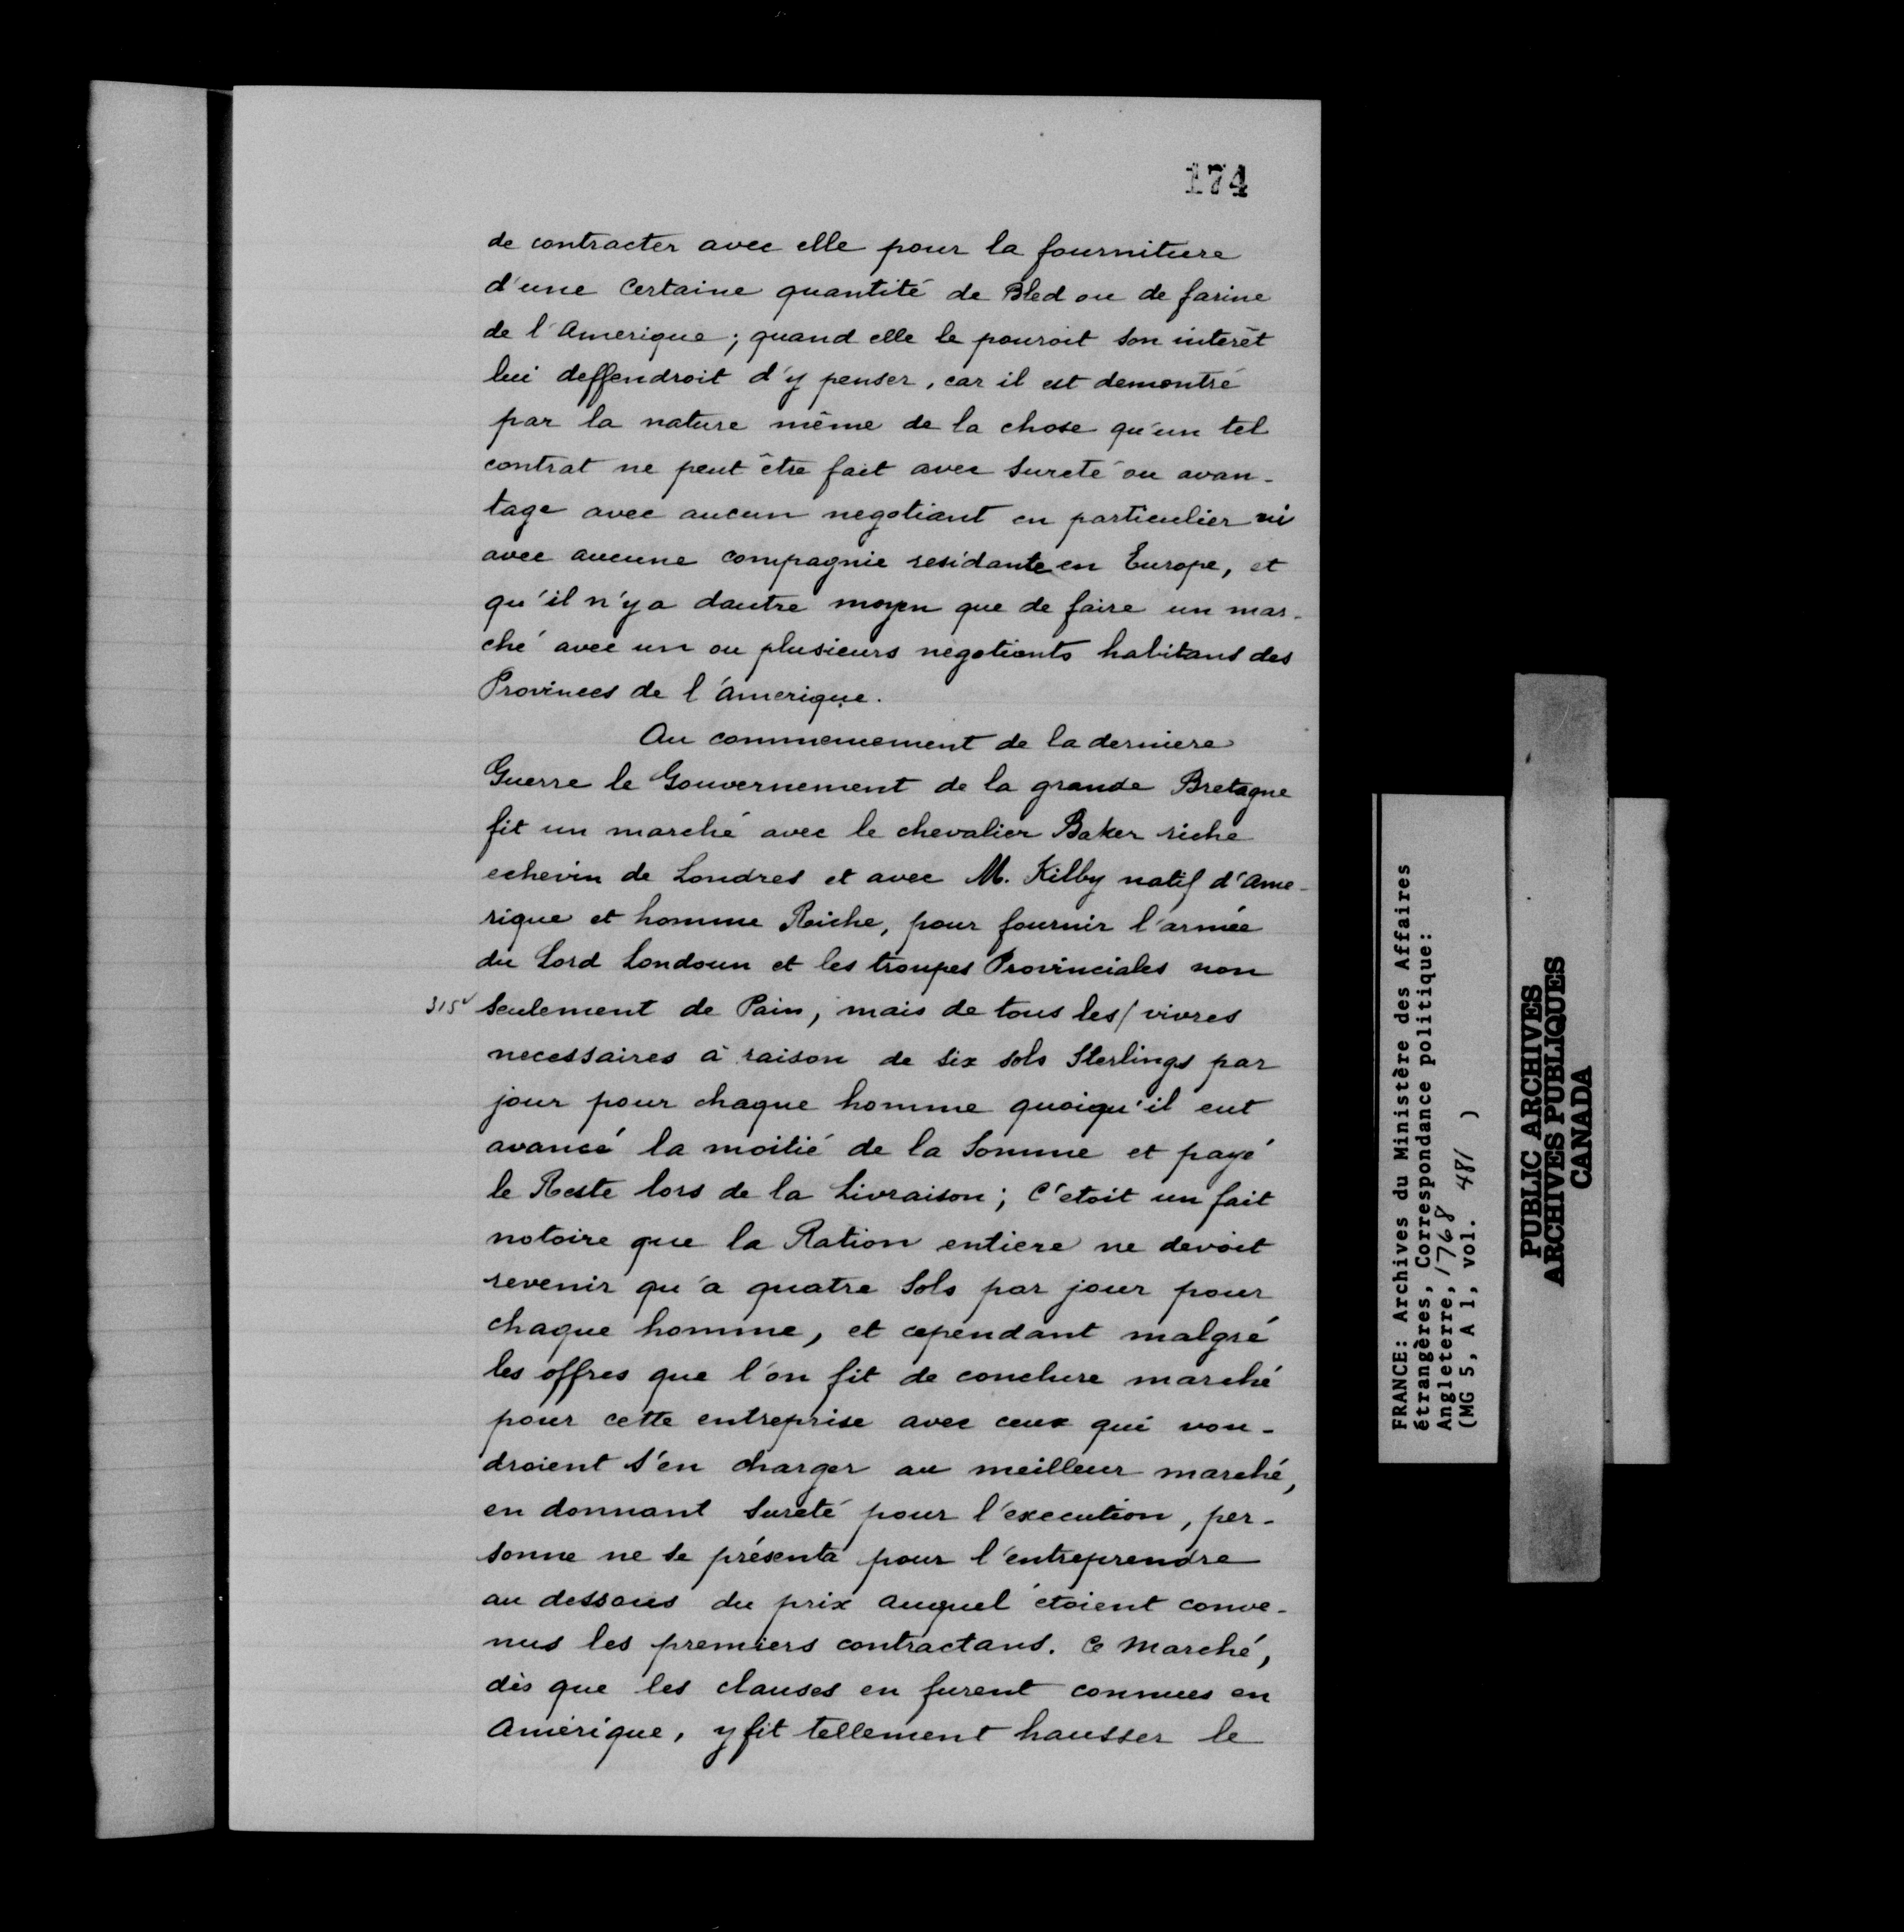 174
de contracter avec elle pour la fourniture
d'une Certaine quantité de Bled ou de farine
de l'Amerique ; quand elle le pouroit son interêt
lui deffendroit d'y penser, car il est demontré
par la nature même de la chose qu'un tel
contrat ne peut être fait avec Sureté ou avan-
tage avec aucun negotiant en particulier ni
avec aucune compagnie residante en Europe, et
qu'il n'y a dautre moyen que de faire un mar-
ché avec un ou plusieurs negotiants habitans des
Provinces de l'Amerique.
Au commencement de la derniere
Guerre le Gouvernement de la grande Bretagne
fit un marché avec le chevalier Baker riche
echevin de Londres et avec M. Kilby natif d'Ame-
rique et homme Reiche, pour fournir l'armée
du Lord Londoun et les troupes Provinciales non
315v seulement de Pain, mais de tous les/ vivres
necessaires à raison de six sols Sterlings par
jour pour chaque homme quoiqu'il eut
avancé la moitié de la Somme et payé
le Reste lors de la Livraison ; C'etoit un fait
notoire que la Ration entiere ne devoit
revenir qu'a quatre Sols par jour pour
chaque homme, et cependant malgré
les offres que l'on fit de conclure marché
pour cette entreprise avec ceux qui vou-
droient s'en charger au meilleur marché,
en donnant Sureté pour l'execution, per-
sonne ne se présenta pour l'entreprendre
au dessous du prix auquel étoient conve-
nus les premiers contractans. Ce Marché,
dès que les clauses en furent connues en
Amérique, y fit tellement hausser le
FRANCE: Archives du Ministère des Affaires
étrangères, Correspondance politique:
Angleterre, 1768
(MG 5, A 1, vol. 481 )
PUBLIC ARCHIVES
ARCHIVES PUBLIQUES
CANADA